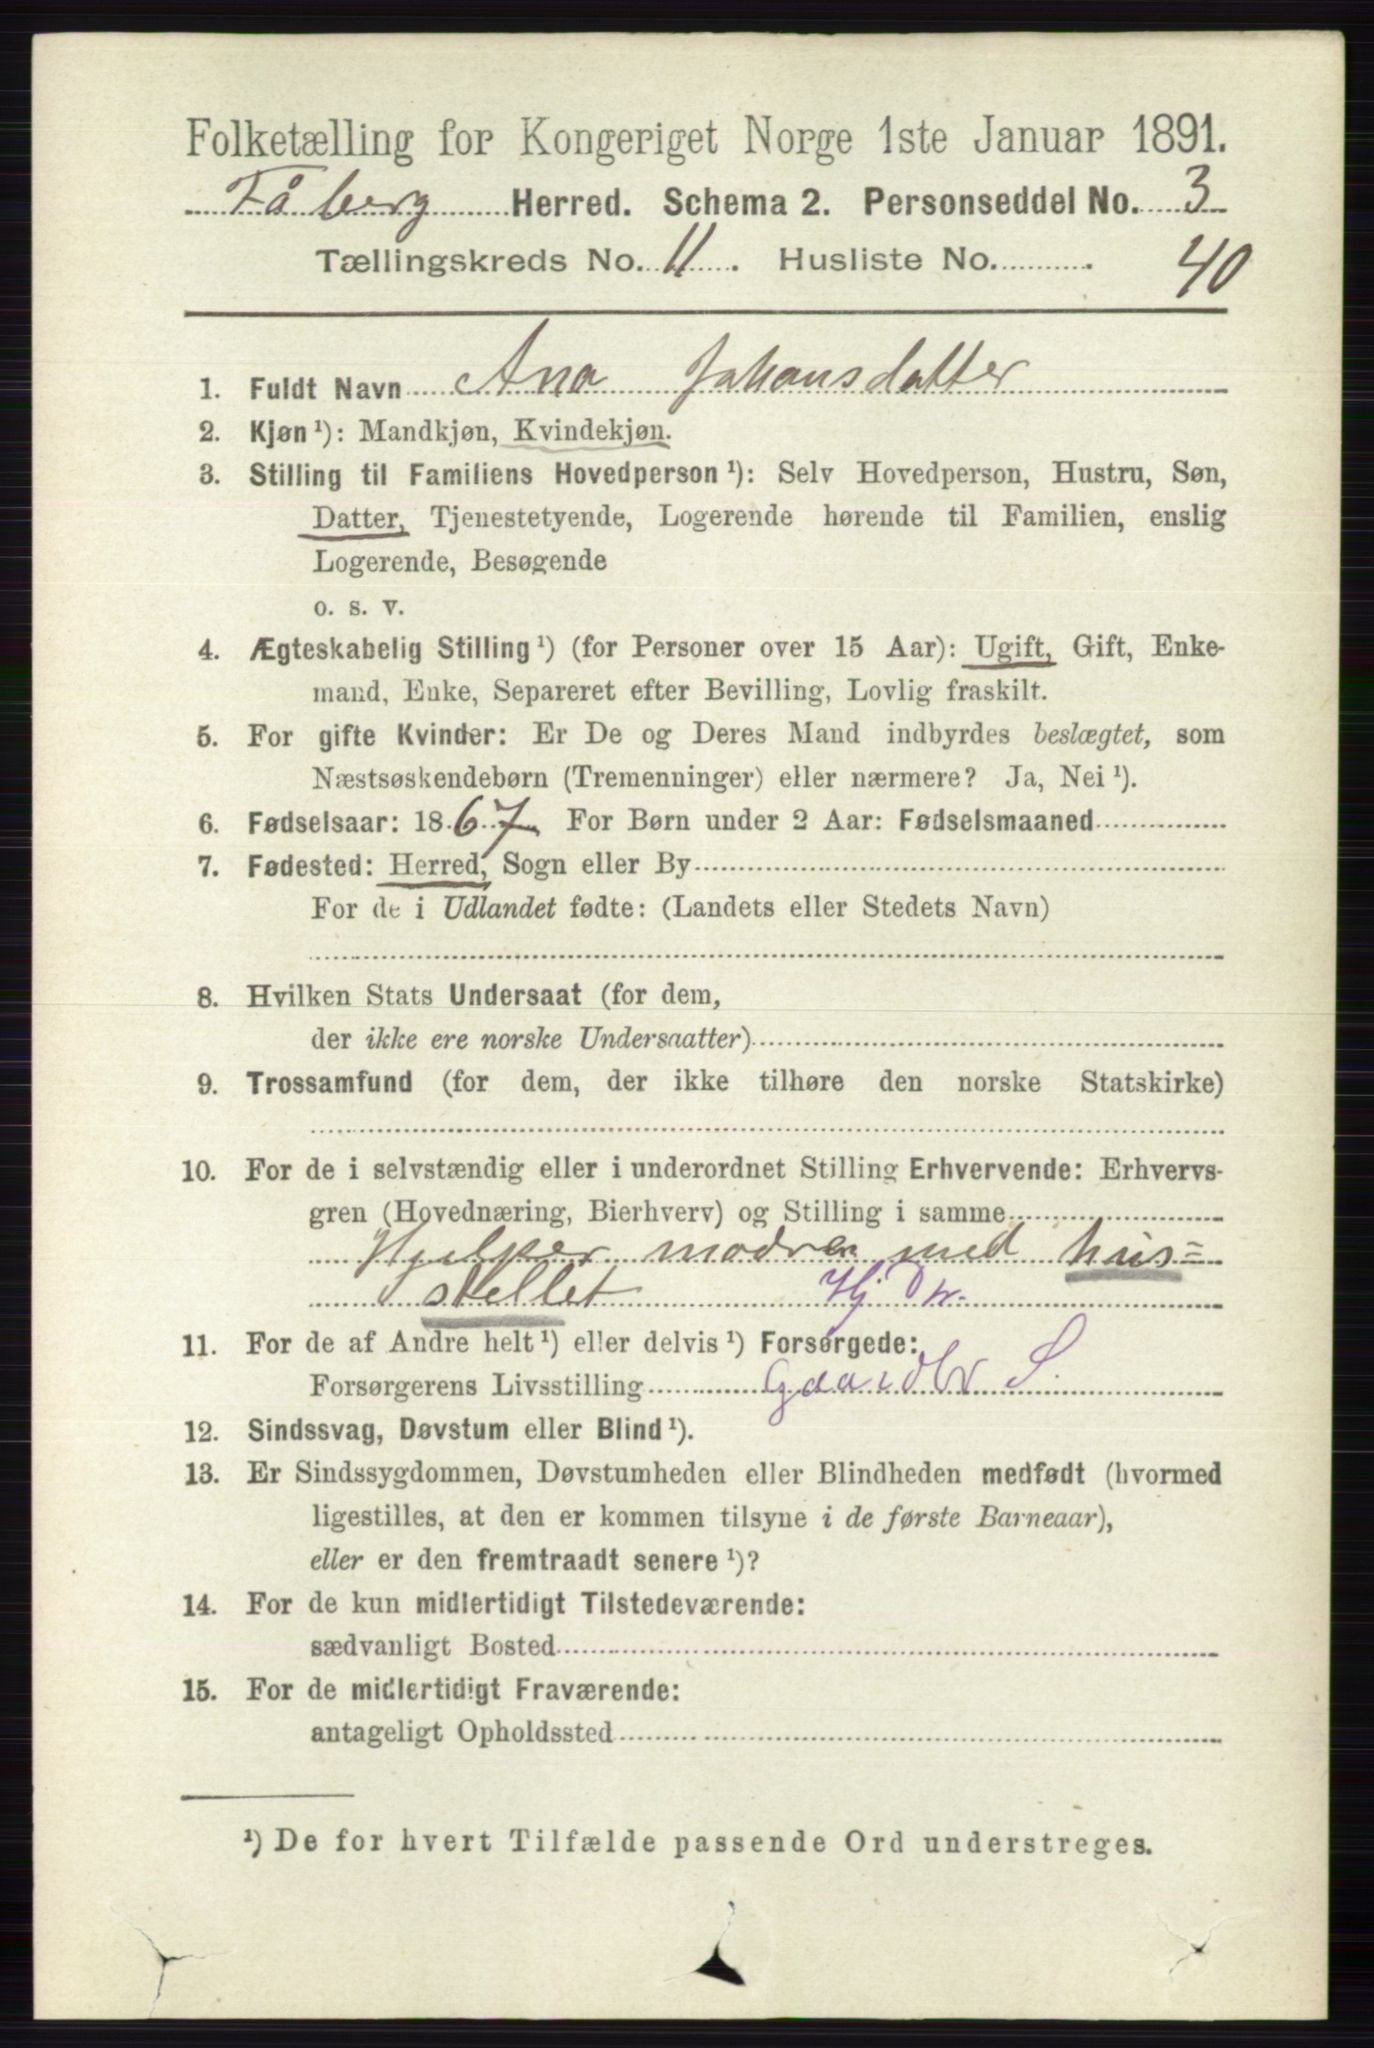 Folketælling for Kongeriget Norge 1ste Januar 1891.
Fåberg Herred. Schema 2. Personseddel No. 3
Tællingskreds No. 11. Husliste No. 40
1. Fuldt Navn Ana Johansdatter
2. Kjøn ¹): Mandkjøn, Kvindekjøn.
3. Stilling til Familiens Hovedperson ¹): Selv Hovedperson, Hustru, Søn,
Datter, Tjenestetyende, Logerende hørende til Familien, enslig
Logerende, Besøgende
o. s. v.
4. Ægteskabelig Stilling ¹) (for Personer over 15 Aar): Ugift, Gift, Enke-
mand, Enke, Separeret efter Bevilling, Lovlig fraskilt.
5. For gifte Kvinder: Er De og Deres Mand indbyrdes beslægtet, som
Næstsøskendebørn (Tremenninger) eller nærmere? Ja, Nei ¹).
6. Fødselsaar: 1867 For Børn under 2 Aar: Fødselsmaaned
7. Fødested: Herred, Sogn eller By
For de i Udlandet fødte: (Landets eller Stedets Navn)
8. Hvilken Stats Undersaat (for dem,
der ikke ere norske Undersaatter)
9. Trossamfund (for dem, der ikke tilhøre den norske Statskirke)
10. For de i selvstændig eller i underordnet Stilling Erhvervende: Erhvervs-
gren (Hovednæring, Bierhverv) og Stilling i samme
Hjelper modren med hus=
stellet Hj
11. For de af Andre helt ¹) eller delvis ¹) Forsørgede:
Forsørgerens Livsstilling Gaardbr S.
12. Sindssvag, Døvstum eller Blind ¹).
13. Er Sindssygdommen, Døvstumheden eller Blindheden medfødt (hvormed
ligestilles, at den er kommen tilsyne i de første Barneaar),
eller er den fremtraadt senere ¹)?
14. For de kun midlertidigt Tilstedeværende:
sædvanligt Bosted
15. For de midlertidigt Fraværende:
antageligt Opholdssted
¹) De for hvert Tilfælde passende Ord understreges.